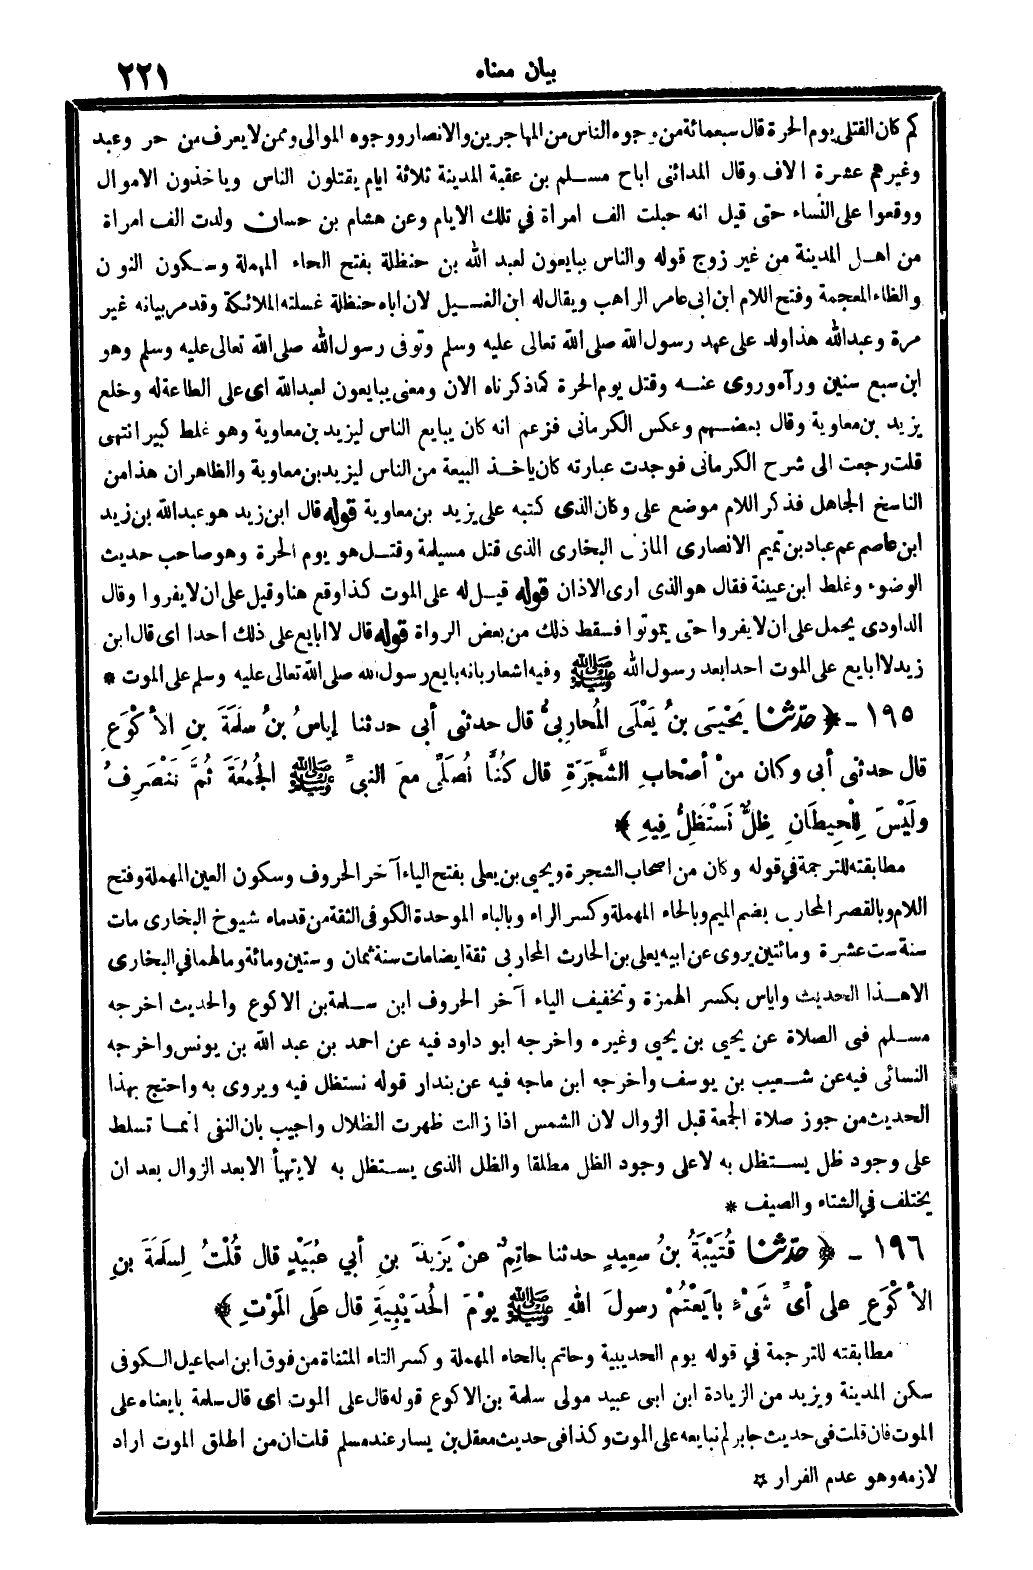 بيان معناه ٢٢١
كم كان القتلى يوم الحرة قال سبعمائة من وجوه الناس من المهاجرين والانصار ووجوه الموالى وممن لا يعرف من حر وعبد
وغيرهم عشرة الاف وقال المدائنى اباح مسلم بن عقبة المدينة ثلاثة ايام يقتلون الناس وياخذون الاموال
ووقعوا على النساء حتى قيل انه حبلت الف امراة في تلك الايام وعن هشام بن حسان ولدت الف امراة
من اهل المدينة من غير زوج قوله والناس يبايعون لعبد الله بن حنظلة بفتح الحاء المهملة وسكون النون
والظاء المعجمة وفتح اللام ابن ابى عامر الراهب ويقال له ابن الغسيل لان اباه حنظلة غسلته الملائكة وقد مر بيانه غير
مرة وعبد الله هذا ولد على عهد رسول الله صلى الله تعالى عليه وسلم وتوفى رسول الله صلى الله تعالى عليه وسلم وهو
ابن سبع سنين ورآه وروى عنه وقتل يوم الحرة كما ذكرناه الان ومعنى يبايعون لعبد الله اى على الطاعة له وخلع
يزيد بن معاوية وقال بعضهم وعكس الكرمانى فزعم انه كان يبايع الناس ليزيد بن معاوية وهو غلط كبير انتهى
قلت رجعت الى شرح الكرمانى فوجدت عبارته كان ياخذ البيعة من الناس ليزيد بن معاوية والظاهر ان هذا من
الناسخ الجاهل فذكر اللام موضع على وكان الذى كتبه على يزيد بن معاوية قوله قال ابن زيد هو عبد الله بن زيد
ابن عاصم عم عباد بن تميم الانصارى المازنى البخارى الذى قتل مسيلمة وقتل هو يوم الحرة وهو صاحب حديث
الوضوء وغلط ابن عيينة فقال هو الذى ارى الاذان قوله قيل له على الموت كذا وقع هنا وقيل على ان لا يفروا وقال
الداودى يحمل على ان لا يفروا حتى يموتوا فسقط ذلك من بعض الرواة قوله قال لا ابايع على ذلك احدا اى قال ابن
زيد لا ابايع على الموت احدا بعد رسول الله ﷺ وفيه اشعار بانه بايع رسول الله صلى الله تعالى عليه وسلم على الموت *
١٩٥ - ﴿ حَدَّثَنَا يَحْيَى بنُ يَعْلَى المُحَارِبيُّ قال حدثنى أبي حدثنا إياسُ بنُ سلَمَةَ بنِ الأكْوَعِ
قال حدثنى أبى وكان مِنْ أصْحابِ الشَّجَرَةِ قال كُنَّا نُصَلِّي معَ النبيِّ ﷺ الجُمُعَةَ ثُمَّ نَنْصَرِفُ
ولَيْسَ لِلْحِيطَانِ ظِلٌّ نَسْتَظِلُّ فِيهِ ﴾
مطابقته للترجمة في قوله وكان من اصحاب الشجرة ويحيى بن يعلى بفتح الياء آخر الحروف وسكون العين المهملة وفتح
اللام وبالقصر المحاربى بضم الميم وبالحاء المهملة وكسر الراء وبالباء الموحدة الكوفى الثقة من قدماء شيوخ البخارى مات
سنة ست عشرة ومائتين يروى عن ابيه يعلى بن الحارث المحاربى ثقة ايضا مات سنة ثمان وستين ومائة وما لهما في البخارى
الا هذا الحديث واياس بكسر الهمزة وتخفيف الياء آخر الحروف ابن سلمة بن الاكوع والحديث اخرجه
مسلم فى الصلاة عن يحيى بن يحيى وغيره واخرجه ابو داود فيه عن احمد بن عبد الله بن يونس واخرجه
النسائى فيه عن شعيب بن يوسف واخرجه ابن ماجه فيه عن بندار قوله نستظل فيه ويروى به واحتج بهذا
الحديث من جوز صلاة الجمعة قبل الزوال لان الشمس اذا زالت ظهرت الظلال واجيب بان النفى انما تسلط
على وجود ظل يستظل به لا على وجود الظل مطلقا والظل الذى يستظل به لا يتهيأ الا بعد الزوال بعد ان
يختلف في الشتاء والصيف *
١٩٦ - ﴿ حَدَّثَنَا قُتَيْبَةُ بنُ سعِيدٍ حدثنا حاتِمٌ عنْ يَزِيدَ بنِ أبي عُبَيْدٍ قال قُلْتُ لِسلَمَةَ بنِ
الأكْوَعِ على أىِّ شَىْءٍ بايَعْتُمْ رسولَ اللهِ ﷺ يوْمَ الحُدَيْبِيَةِ قال علَى المَوْتِ ﴾
مطابقته للترجمة في قوله يوم الحديبية وحاتم بالحاء المهملة وكسر التاء المثناة من فوق ابن اسماعيل الكوفى
سكن المدينة ويزيد من الزيادة ابن ابى عبيد مولى سلمة بن الاكوع قوله قال على الموت اى قال سلمة بايعناه على
الموت فان قلت فى حديث جابر لم نبايعه على الموت وكذا فى حديث معقل بن يسار عند مسلم قلت ان من اطلق الموت اراد
لازمه وهو عدم الفرار *